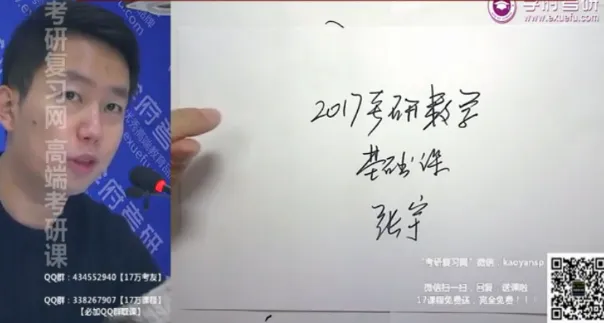 考研复习网 高端考研课
QQ群：434552940【17万考友】
QQ群：338267907【17万课程】
【必加QQ群联课】
学府考研
www.exuefu.com
2017考研数学
基础课
张宇
"考研复习网"微信：kaoyansp
微信扫一扫，回复：送课啦
17课程免费送，完全免费！！！